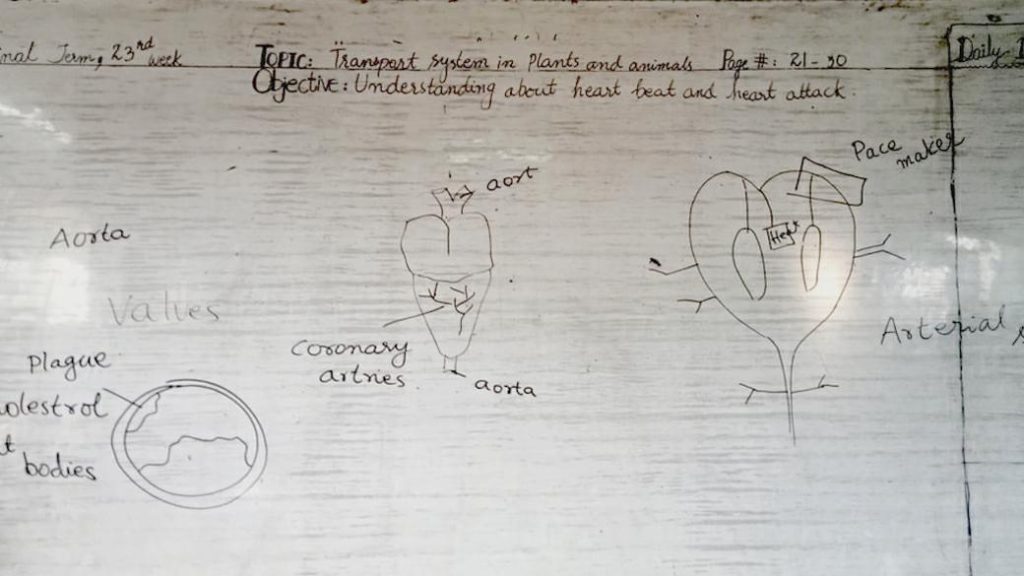 nal Term, 23rd week
TOPIC: Transport system in Plants and animals Page #: 21-30
Objective: Understanding about heart beat and heart attack.
Daily
Pace maker
aort
Aorta
Valves
Arterial
Coronary
artries
aorta
Plague
olestrol
t
bodies